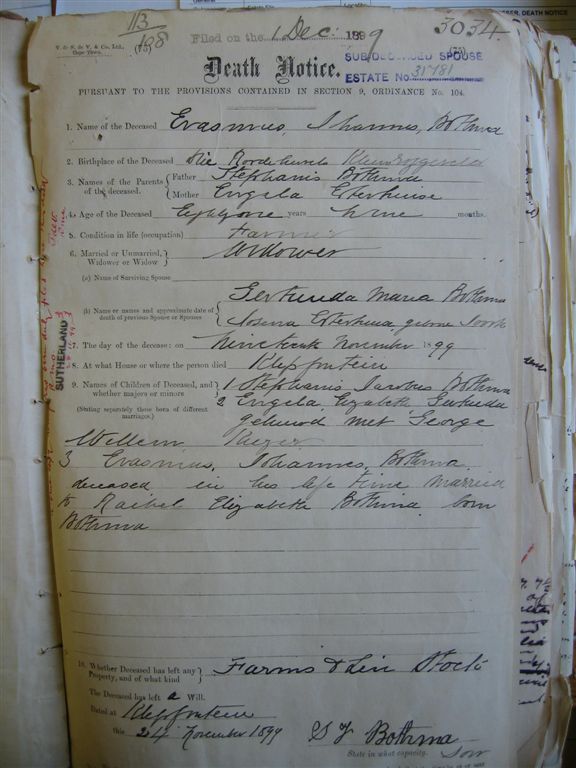 113
108
Filed on the 1 Dec. 1899
3034
V. & S. de V. & Co., Ltd., Cape Town.
(75)
SUB/DECEASED SPOUSE
ESTATE No. 31781
Death Notice.
PURSUANT TO THE PROVISIONS CONTAINED IN SECTION 9, ORDINANCE No. 104.
1. Name of the Deceased Erasmus, Johannes, Bothma
2. Birthplace of the Deceased
3. Names of the Parents of the deceased. Father Stephanis Bothma
Mother Engela Esterhuise
4. Age of the Deceased years months.
5. Condition in life (occupation) Farmer
6. Married or Unmarried, Widower or Widow Widower
(a) Name of Surviving Spouse
(b) Name or names and approximate date of death of previous Spouse or Spouses Gertruida Maria Bothma
7. The day of the decease: on November 1899
8. At what House or where the person died Klipfontein
SUTHERLAND
9. Names of Children of Deceased, and whether majors or minors 1 Stephanis Jacobus Bothma
(Stating separately those born of different marriages.) 2 Engela Elizabeth Gertruida
gehuwd met George
Willem
3 Erasmus, Johannes, Bothma
deceased in his life time married
to Rachel Elizabeth Bothma born
Bothma
10. Whether Deceased has left any Property, and of what kind Farms & Live Stock
The Deceased has left a Will.
Dated at Klipfontein
this 24 November 1899
S J Bothma
State in what capacity. Son